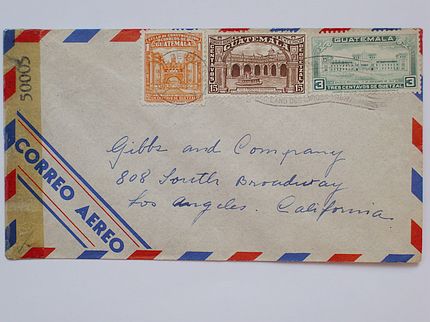 GUATEMALA
GUATEMALA
15
15
GUATEMALA
3
3
TRES CENTAVOS DE QUETZAL
50005
CORREO AEREO
Gibbs and Company
808 South Broadway
Los Angeles. California.